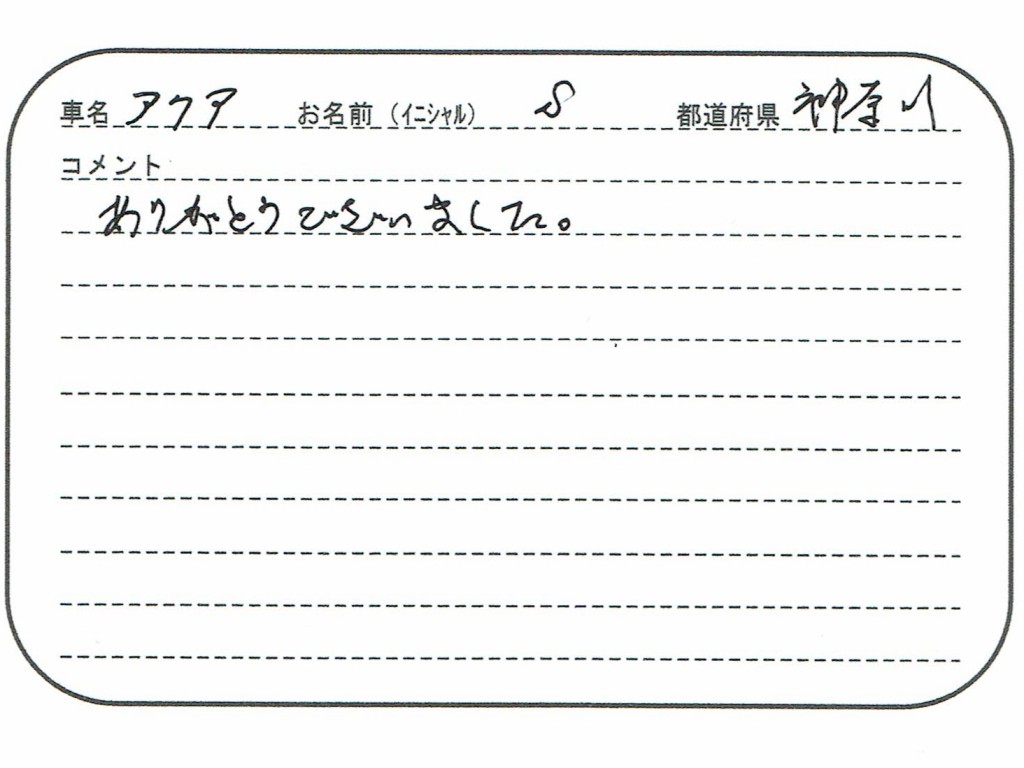 車名 アクア お名前（イニシャル） S 都道府県 神奈川
コメント
ありがとうございました。